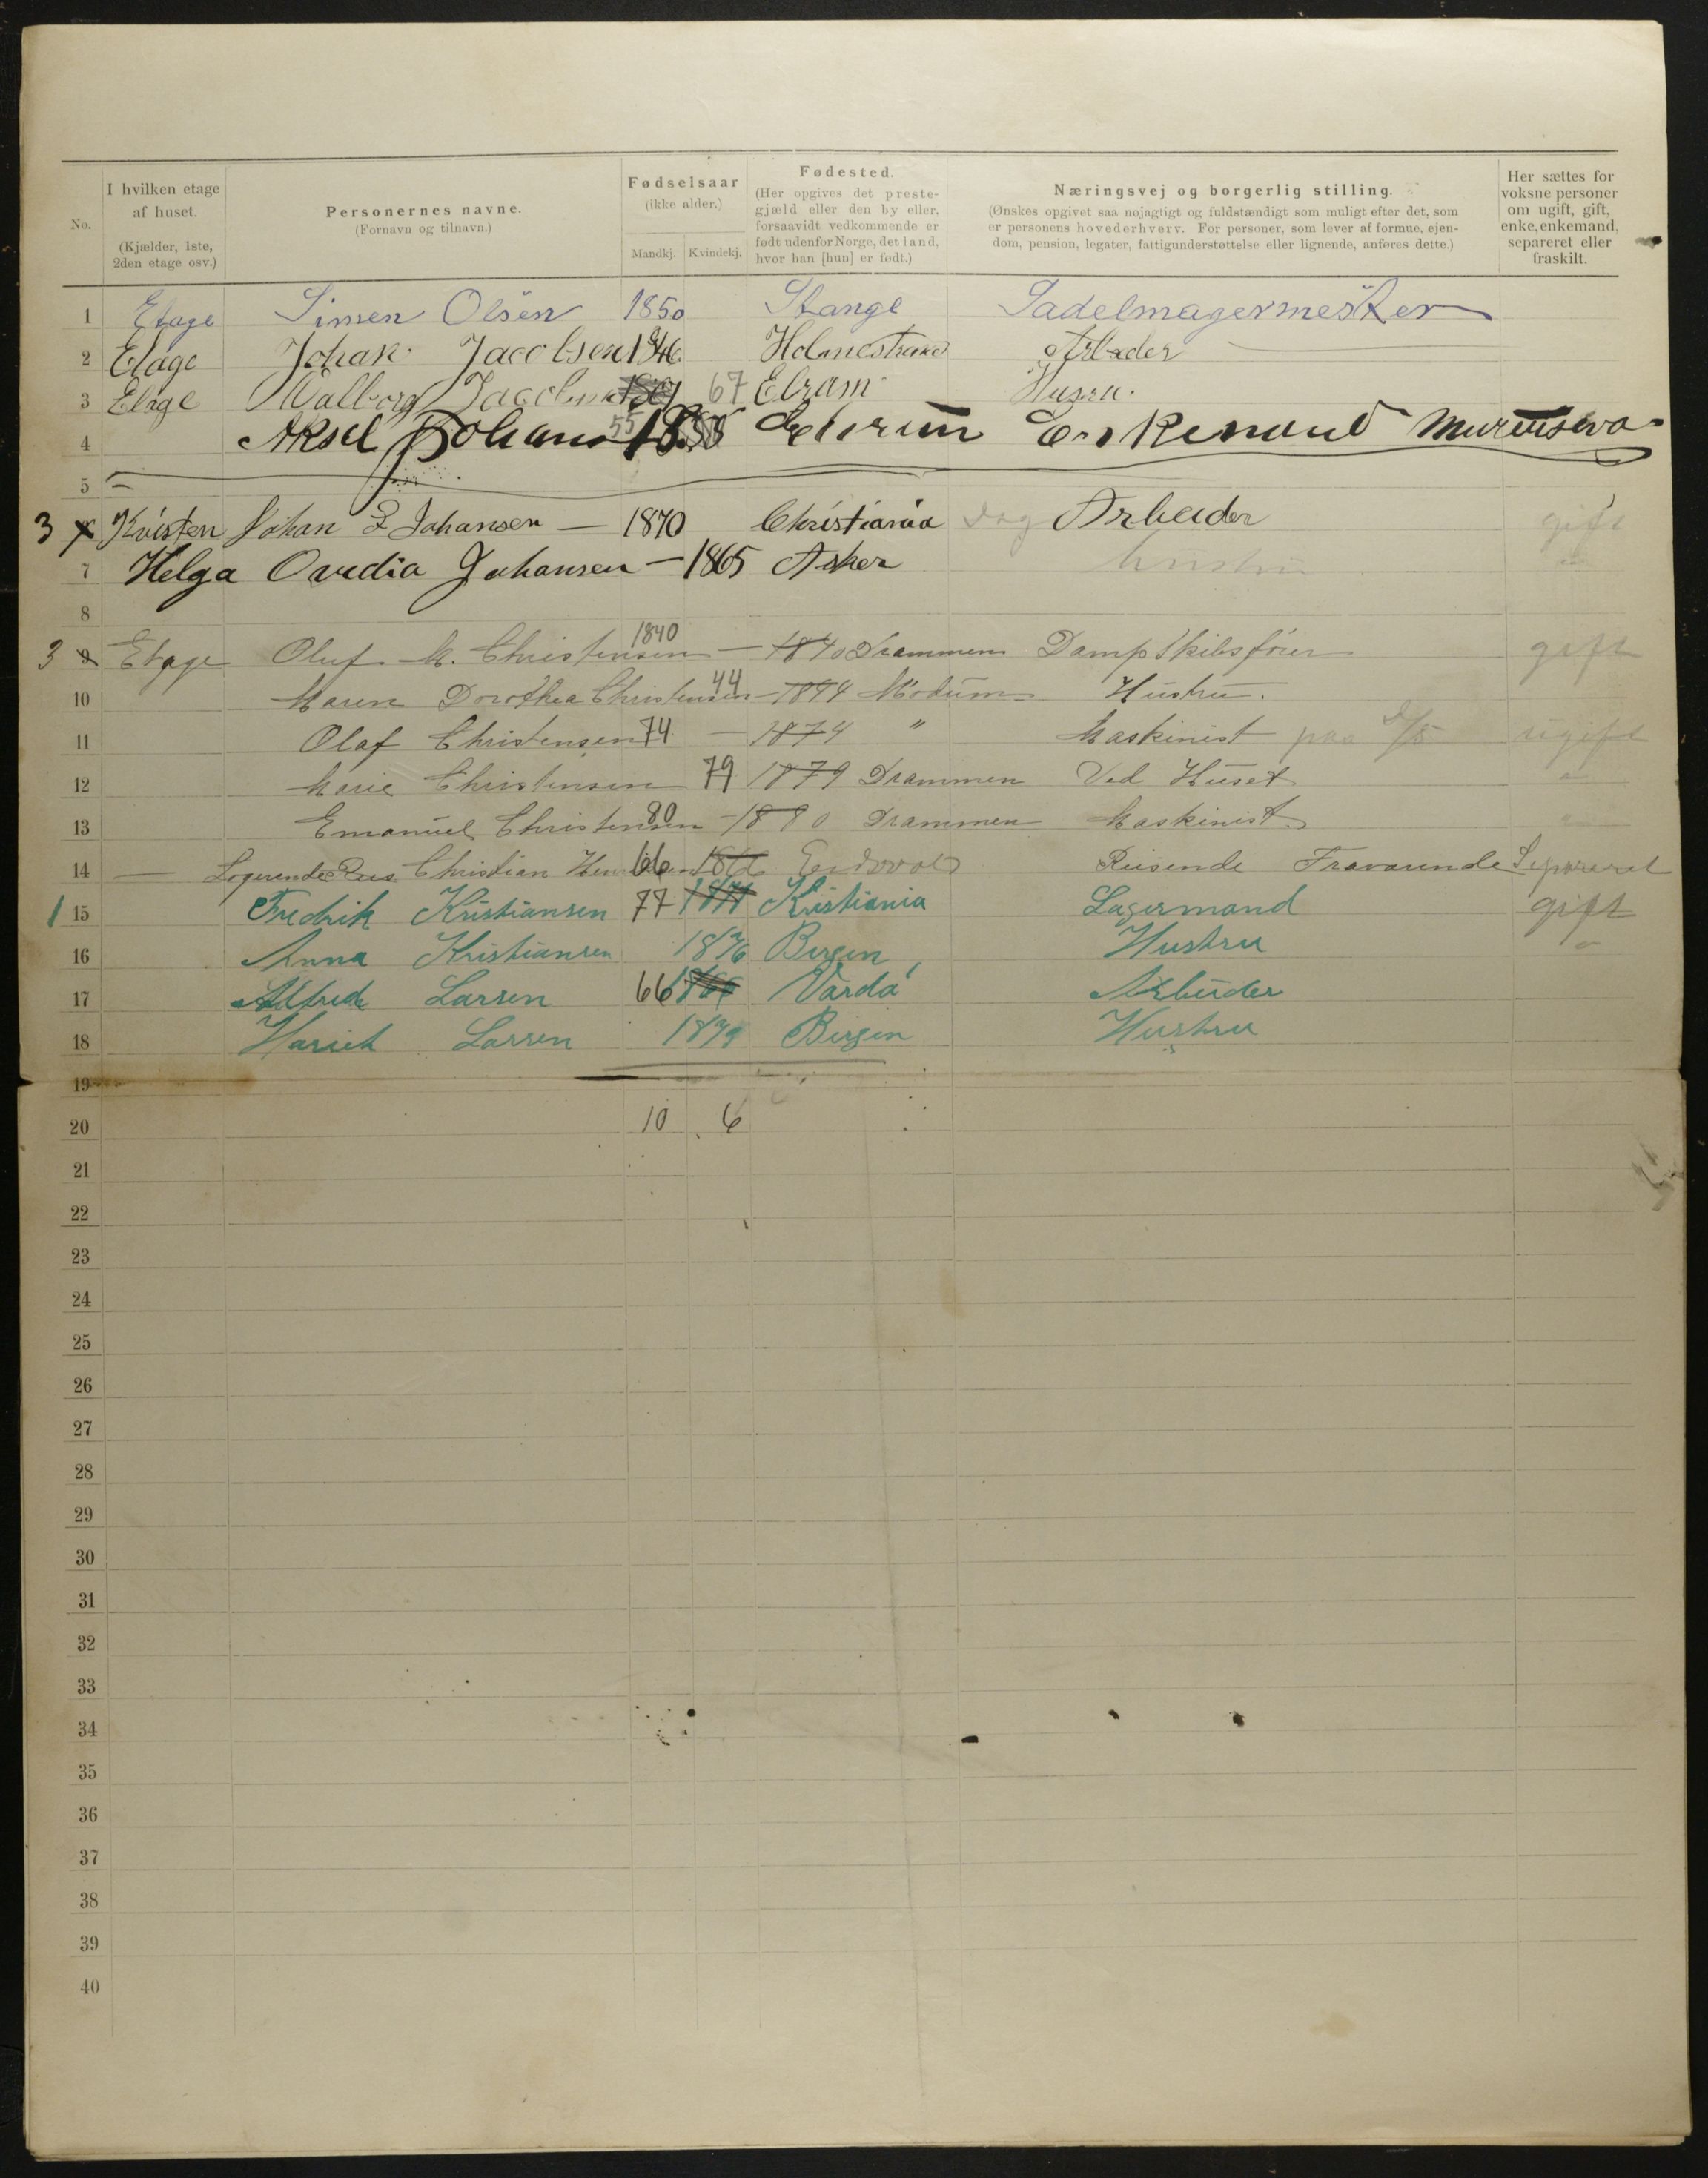 No.
I hvilken etage af huset. (Kjælder, 1ste, 2den etage osv.)
Personernes navne. (Fornavn og tilnavn.)
Fødselsaar (ikke alder.)
Mandkj. Kvindekj.
Fødested. (Her opgives det prestegjæld eller den by eller, forsaavidt vedkommende er født udenfor Norge, det land, hvor han [hun] er født.)
Næringsvej og borgerlig stilling.
(Ønskes opgivet saa nøjagtigt og fuldstændigt som muligt efter det, som er personens hovederhverv. For personer, som lever af formue, ejendom, pension, legater, fattigunderstøttelse eller lignende, anføres dette.)
Her sættes for voksne personer om ugift, gift, enke, enkemand, separeret eller fraskilt.
1 Etage Simen Olsen 1850 Stange Sadelmagermester
2 Etage Johan Jacobsen 1846 Holmestrand Arbeder
3 Etage Walborg 67
4 Aksel 55
5
3 Kvisten Johan Johansen — 1870 Christiania Dag Arbeider gift
7 Helga Ovedia Johansen — 1865 Asker Hustru "
8
3 9 Etage Oluf M. Christensen 1840 — 1840 Drammen Dampskibsfører gift
10 Maren Dorothea Christensen 44 — 1844 Modum Hustru.
11 Olaf Christensen 74 — 1874 " Maskinist paa ugift
12 Marie Christensen 79 1879 Drammen Ved Huset "
13 Emanuel Christensen 80 — 1880 Drammen Maskinist "
14 — Logerende Christian 66 1866 Eidsvold Reisende Fraværende Separeret
1 15 Fredrik Kristiansen 77 Kristiania Lagermand gift
16 Anna Kristiansen 1876 Bergen Hustru "
17 Alfred Larsen 66 Vardø Arbeider
18 Larsen Bergen Hustru
19
20 10 6
21
22
23
24
25
26
27
28
29
30
31
32
33
34
35
36
37
38
39
40